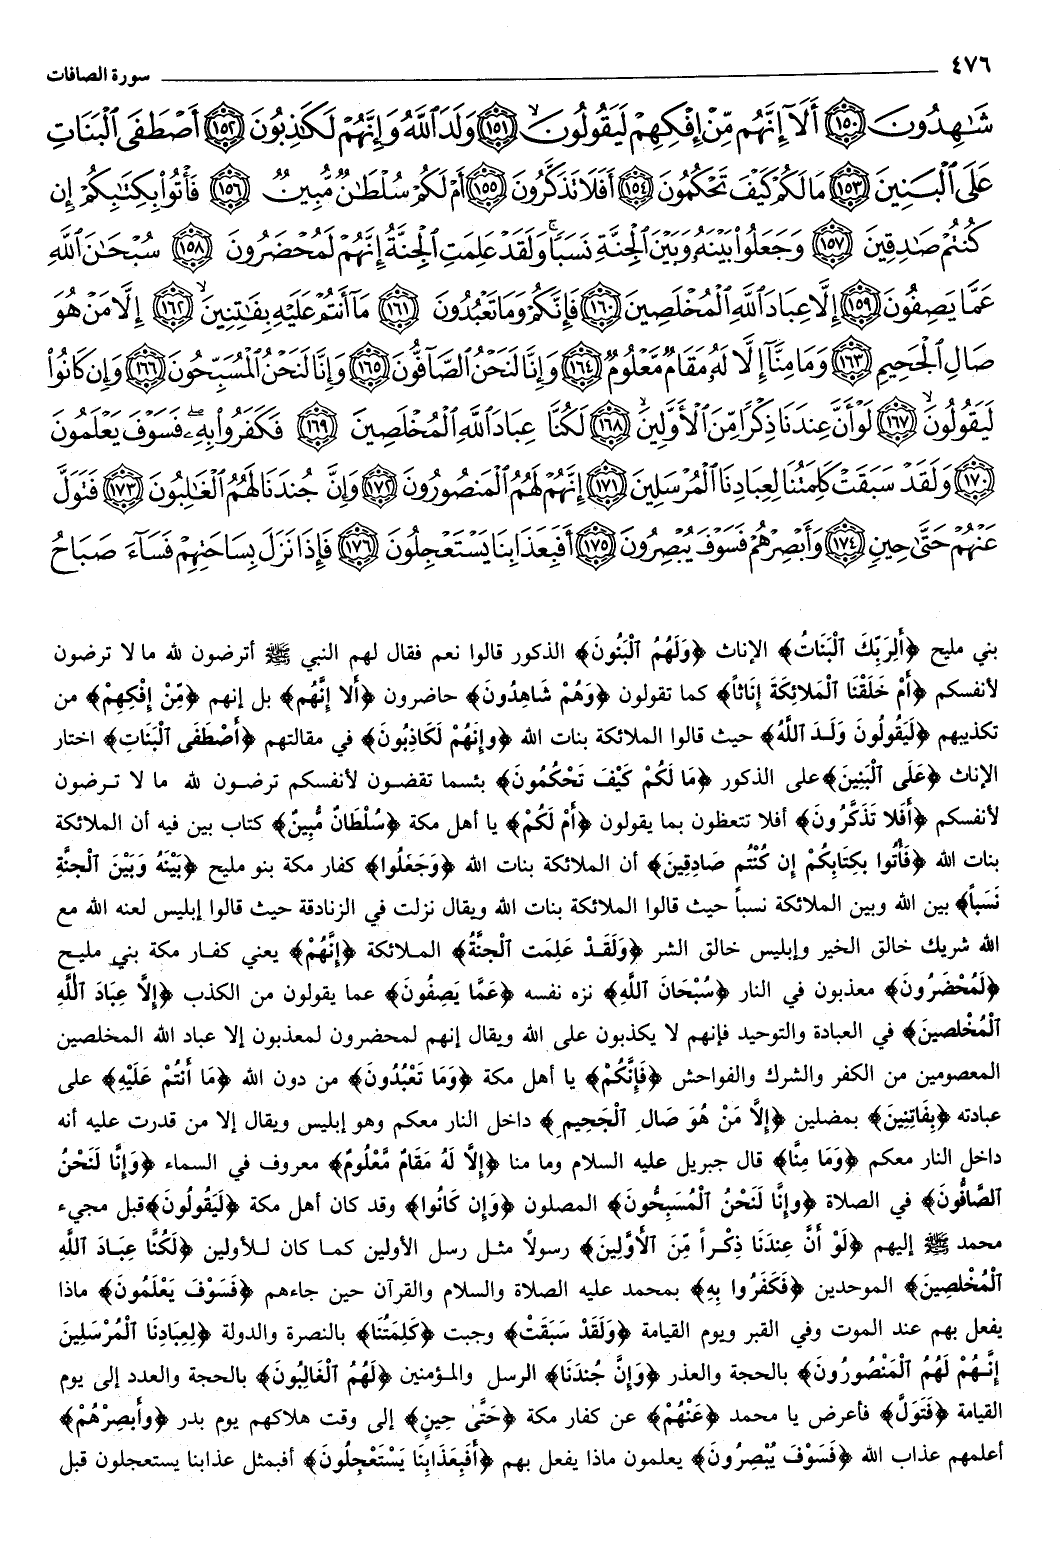 ٤٧٦ سورة الصافات
شَـٰهِدُونَ ١٥٠ أَلَآ إِنَّهُم مِّنْ إِفْكِهِمْ لَيَقُولُونَ ١٥١ وَلَدَ ٱللَّهُ وَإِنَّهُمْ لَكَـٰذِبُونَ ١٥٢ أَصْطَفَى ٱلْبَنَاتِ
عَلَى ٱلْبَنِينَ ١٥٣ مَا لَكُمْ كَيْفَ تَحْكُمُونَ ١٥٤ أَفَلَا تَذَكَّرُونَ ١٥٥ أَمْ لَكُمْ سُلْطَـٰنٌ مُّبِينٌ ١٥٦ فَأْتُوا۟ بِكِتَـٰبِكُمْ إِن
كُنتُمْ صَـٰدِقِينَ ١٥٧ وَجَعَلُوا۟ بَيْنَهُۥ وَبَيْنَ ٱلْجِنَّةِ نَسَبًا ۚ وَلَقَدْ عَلِمَتِ ٱلْجِنَّةُ إِنَّهُمْ لَمُحْضَرُونَ ١٥٨ سُبْحَـٰنَ ٱللَّهِ
عَمَّا يَصِفُونَ ١٥٩ إِلَّا عِبَادَ ٱللَّهِ ٱلْمُخْلَصِينَ ١٦٠ فَإِنَّكُمْ وَمَا تَعْبُدُونَ ١٦١ مَآ أَنتُمْ عَلَيْهِ بِفَـٰتِنِينَ ١٦٢ إِلَّا مَنْ هُوَ
صَالِ ٱلْجَحِيمِ ١٦٣ وَمَا مِنَّآ إِلَّا لَهُۥ مَقَامٌ مَّعْلُومٌ ١٦٤ وَإِنَّا لَنَحْنُ ٱلصَّآفُّونَ ١٦٥ وَإِنَّا لَنَحْنُ ٱلْمُسَبِّحُونَ ١٦٦ وَإِن كَانُوا۟
لَيَقُولُونَ ١٦٧ لَوْ أَنَّ عِندَنَا ذِكْرًا مِّنَ ٱلْأَوَّلِينَ ١٦٨ لَكُنَّا عِبَادَ ٱللَّهِ ٱلْمُخْلَصِينَ ١٦٩ فَكَفَرُوا۟ بِهِۦ ۖ فَسَوْفَ يَعْلَمُونَ
١٧٠ وَلَقَدْ سَبَقَتْ كَلِمَتُنَا لِعِبَادِنَا ٱلْمُرْسَلِينَ ١٧١ إِنَّهُمْ لَهُمُ ٱلْمَنصُورُونَ ١٧٢ وَإِنَّ جُندَنَا لَهُمُ ٱلْغَـٰلِبُونَ ١٧٣ فَتَوَلَّ
عَنْهُمْ حَتَّىٰ حِينٍ ١٧٤ وَأَبْصِرْهُمْ فَسَوْفَ يُبْصِرُونَ ١٧٥ أَفَبِعَذَابِنَا يَسْتَعْجِلُونَ ١٧٦ فَإِذَا نَزَلَ بِسَاحَتِهِمْ فَسَآءَ صَبَاحُ
بني مليح ﴿أَلِرَبِّكَ ٱلْبَنَاتُ﴾ الإناث ﴿وَلَهُمُ ٱلْبَنُونَ﴾ الذكور قالوا نعم فقال لهم النبي ﷺ أترضون لله ما لا ترضون
لأنفسكم ﴿أَمْ خَلَقْنَا ٱلْمَلائِكَةَ إِنَاثاً﴾ كما تقولون ﴿وَهُمْ شَاهِدُونَ﴾ حاضرون ﴿أَلا إِنَّهُم﴾ بل إنهم ﴿مِّنْ إِفْكِهِمْ﴾ من
تكذيبهم ﴿لَيَقُولُونَ وَلَدَ ٱللَّهُ﴾ حيث قالوا الملائكة بنات الله ﴿وإنهُمْ لَكَاذِبُونَ﴾ في مقالتهم ﴿أَصْطَفَى ٱلْبَنَاتِ﴾ اختار
الإناث ﴿عَلَى ٱلْبَنِينَ﴾على الذكور ﴿مَا لَكُمْ كَيْفَ تَحْكُمُونَ﴾ بئسما تقضون لأنفسكم ترضون لله ما لا ترضون
لأنفسكم ﴿أَفَلا تَذَكَّرُونَ﴾ أفلا تتعظون بما يقولون ﴿أَمْ لَكُمْ﴾ يا أهل مكة ﴿سُلْطَانٌ مُّبِينٌ﴾ كتاب بين فيه أن الملائكة
بنات الله ﴿فَأْتُوا بِكِتَابِكُمْ إِن كُنْتُم صَادِقِينَ﴾ أن الملائكة بنات الله ﴿وَجَعَلُوا﴾ كفار مكة بنو مليح ﴿بَيْنَهُ وَبَيْنَ ٱلْجِنَّةِ
نَسَباً﴾ بين الله وبين الملائكة نسباً حيث قالوا الملائكة بنات الله ويقال نزلت في الزنادقة حيث قالوا إبليس لعنه الله مع
الله شريك خالق الخير وإبليس خالق الشر ﴿وَلَقَدْ عَلِمَت ٱلْجِنَّةُ﴾ الملائكة ﴿إِنَّهُمْ﴾ يعني كفار مكة بني مليح
﴿لَمُحْضَرُونَ﴾ معذبون في النار ﴿سُبْحَانَ ٱللَّهِ﴾ نزه نفسه ﴿عَمَّا يَصِفُونَ﴾ عما يقولون من الكذب ﴿إِلَّا عِبَادَ ٱللَّهِ
ٱلْمُخْلَصِينَ﴾ في العبادة والتوحيد فإنهم لا يكذبون على الله ويقال إنهم لمحضرون لمعذبون إلا عباد الله المخلصين
المعصومين من الكفر والشرك والفواحش ﴿فَإِنَّكُمْ﴾ يا أهل مكة ﴿وَمَا تَعْبُدُونَ﴾ من دون الله ﴿مَا أَنتُمْ عَلَيْهِ﴾ على
عبادته ﴿بِفَاتِنِينَ﴾ بمضلين ﴿إِلَّا مَنْ هُوَ صَالِ ٱلْجَحِيمِ﴾ داخل النار معكم وهو إبليس ويقال إلا من قدرت عليه أنه
داخل النار معكم ﴿وَمَا مِنَّا﴾ قال جبريل عليه السلام وما منا ﴿إِلَّا لَهُ مَقَامٌ مَّعْلُومٌ﴾ معروف في السماء ﴿وَإِنَّا لَنَحْنُ
ٱلصَّافُّونَ﴾ في الصلاة ﴿وإِنَّا لَنَحْنُ ٱلْمُسَبِّحُونَ﴾ المصلون ﴿وَإِن كَانُوا﴾ وقد كان أهل مكة ﴿لَيَقُولُونَ﴾قبل مجيء
محمد ﷺ إليهم ﴿لَوْ أَنَّ عِندَنَا ذِكْراً مِّنَ ٱلأَوَّلِينَ﴾ رسولاً مثل رسل الأولين كما كان للأولين ﴿لَكُنَّا عِبَادَ ٱللَّهِ
ٱلْمُخْلَصِينَ﴾ الموحدين ﴿فَكَفَرُوا بِهِ﴾ بمحمد عليه الصلاة والسلام والقرآن حين جاءهم ﴿فَسَوْفَ يَعْلَمُونَ﴾ ماذا
يفعل بهم عند الموت وفي القبر ويوم القيامة ﴿وَلَقَدْ سَبَقَتْ﴾ وجبت ﴿كَلِمَتُنَا﴾ بالنصرة والدولة ﴿لِعِبَادِنَا ٱلْمُرْسَلِينَ
إِنَّهُمْ لَهُمُ ٱلْمَنْصُورُونَ﴾ بالحجة والعذر ﴿وَإِنَّ جُندَنَا﴾ الرسل والمؤمنين ﴿لَهُمُ ٱلْغَالِبُونَ﴾ بالحجة والعدد إلى يوم
القيامة ﴿فَتَوَلَّ﴾ فأعرض يا محمد ﴿عَنْهُمْ﴾ عن كفار مكة ﴿حَتَّىٰ حِينٍ﴾ إلى وقت هلاكهم يوم بدر ﴿وأَبصِرْهُمْ﴾
أعلمهم عذاب الله ﴿فَسَوْفَ يُبْصِرُونَ﴾ يعلمون ماذا يفعل بهم ﴿أَفَبِعَذَابِنَا يَسْتَعْجِلُونَ﴾ أفبمثل عذابنا يستعجلون قبل